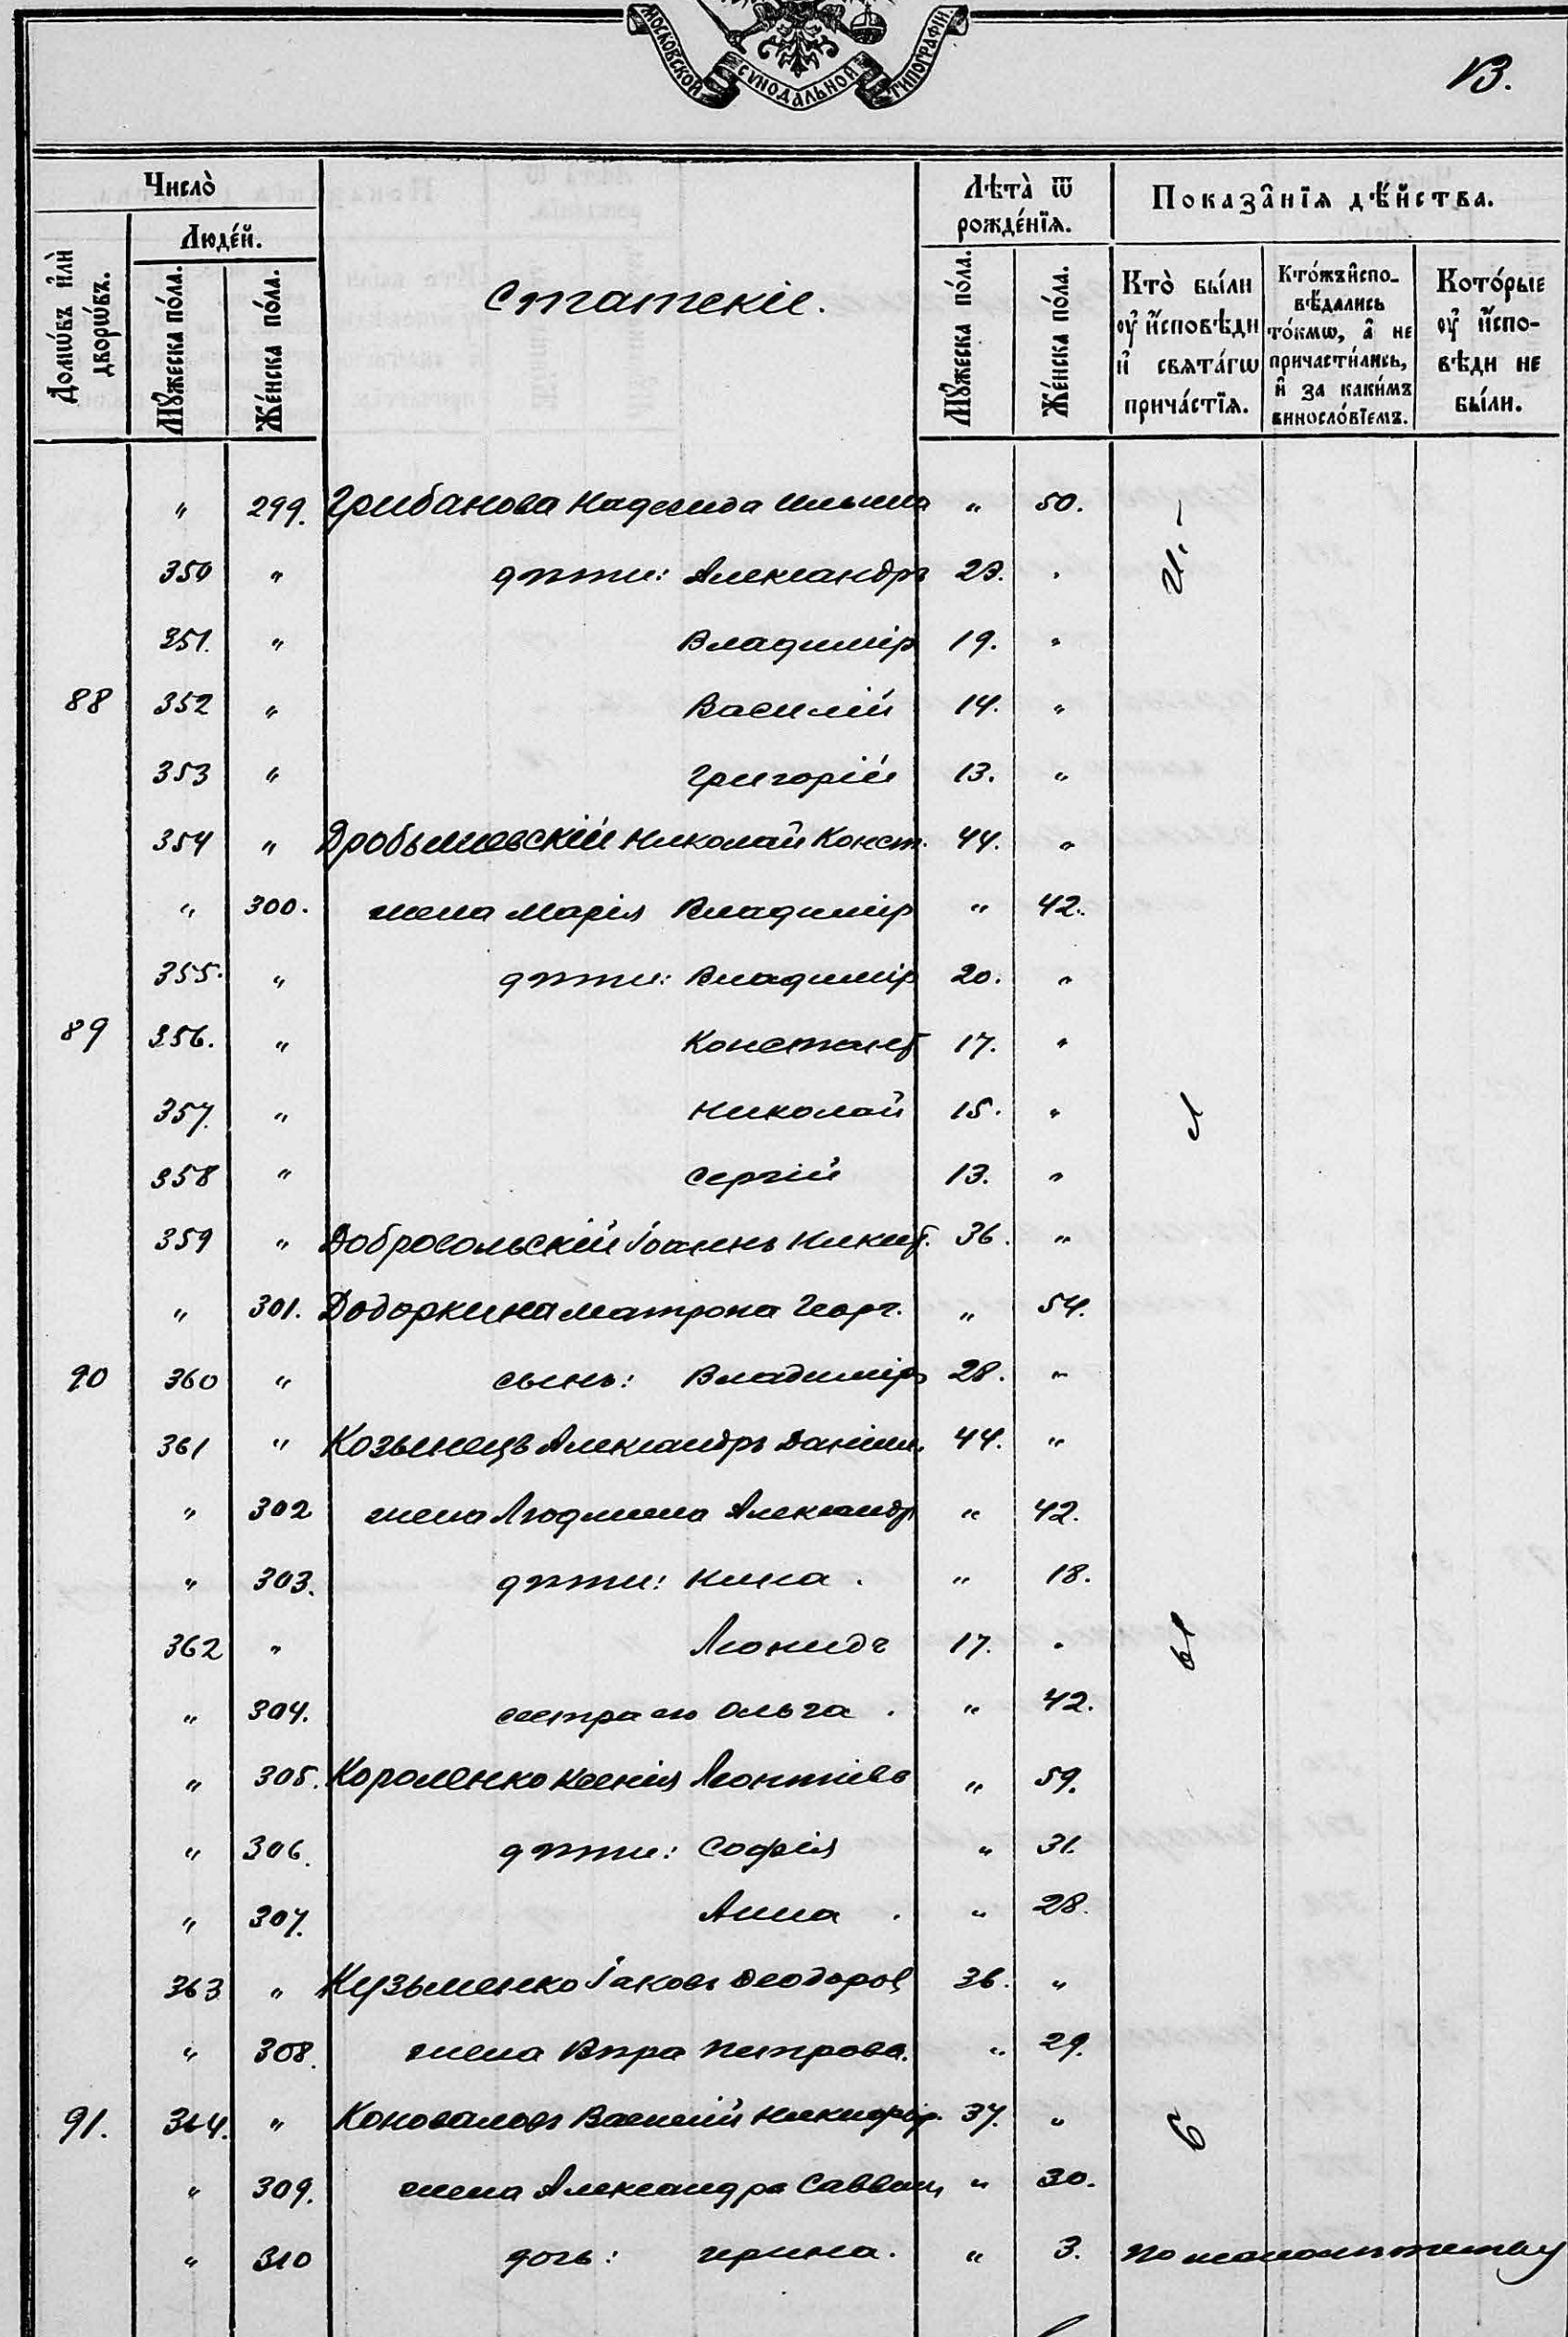 МОСКОВСКОЙ СѴНОДАЛЬНОЙ ТИПОГРАФІИ
13.
Число̀
Домѡ́въ и҆лѝ дворѡ́въ.
Люде́й.
Мꙋ́жеска по́ла.
Же́нска по́ла.
Статскіе.
Лѣта̀ ѿ рожде́нїѧ.
Мꙋ́жеска по́ла.
Же́нска по́ла.
Показа̑нїѧ дѣ́йства.
Кто̀ бы́ли ᲂу҆ и҆́сповѣди и҆ свѧта́гѡ прича́стїѧ.
Кто́жъ и҆сповѣдались то́кмѡ, а҆ не причасти́лись, и҆ за каки́мъ виносло́вїемъ.
Кото́рые ᲂу҆ и҆́сповѣди не бы́ли.
" 299. Грибанова Надежда Ильина " 50.
350 " дѣти: Александръ 23. "
351. " Владиміръ 19. "
88 352 " Василій 14. "
353 " Григорій 13. "
354 " Дробышевскій Николай Конст. 44. "
" 300. жена Марія Владимір " 42.
355. " дѣти: Владимір 20. "
89 356. " Констант 17. "
357. " Николай 15. "
358 " Сергій 13. "
359 " Добросольскій Іоаннъ Никит. 36. "
" 301. Додоркина Матрона Георг. " 54.
90 360 " сынъ: Владиміръ 28. "
361 " Козынецъ Александръ Даніил. 44. "
" 302 жена Людмила Александр " 42.
" 303. дѣти: Нина. " 18.
362 " Леонидъ 17. "
" 304. сестра его Ольга. " 42.
" 305. Короленко Ксенія Леонтіев " 59.
" 306. дѣти: Софія " 31.
" 307. Анна. " 28.
363 " Кузьменко Іаковъ Ѳеодоров 36. "
" 308. жена Вѣра Петрова. " 29.
91. 364. " Коноваловъ Василій Никифор. 37. "
" 309. жена Александра Саввич " 30.
" 310 дочь: Ирина. " 3. по малолѣтству